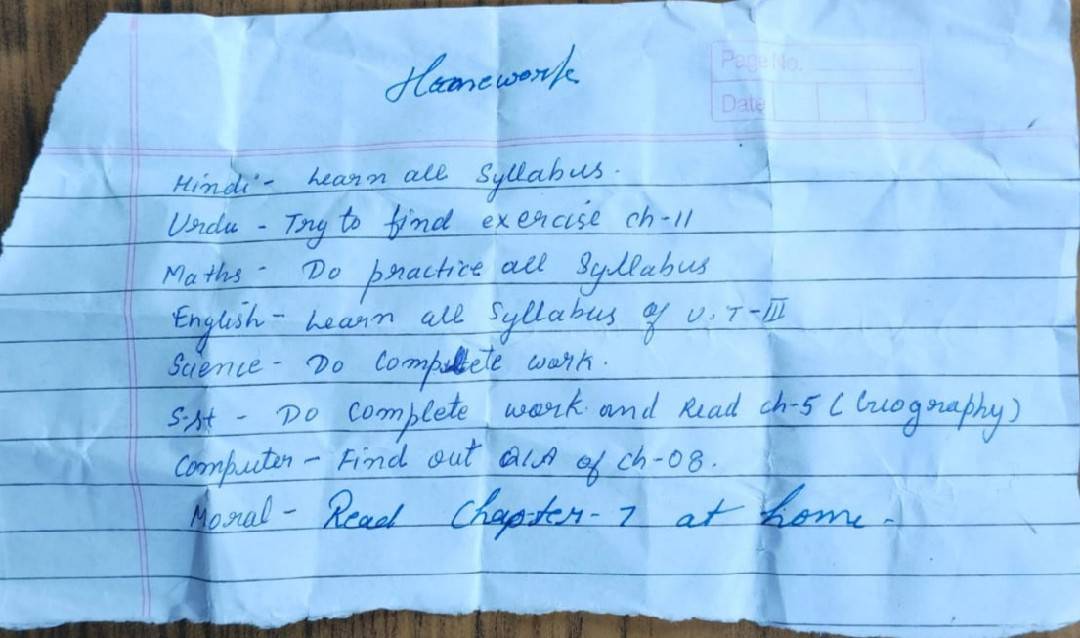 Homework
Page No.
Date
Hindi - Learn all Syllabus.
Urdu - Try to find exercise ch-11
Maths - Do practice all Syllabus
English - Learn all Syllabus of U.T-III
Science - Do Complete work.
S.st - Do Complete work and Read ch-5 (Geography)
Computer - Find out Q/A of ch-08.
Moral - Read Chapter-7 at home.